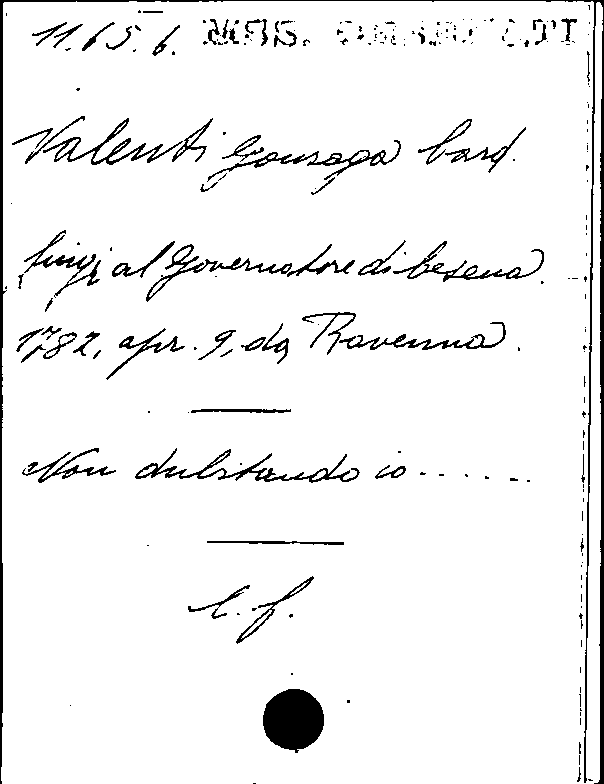 11.65.6. MSS.
Valenti Gonzaga Card.
Luigi al Governatore di Cesena.
1782, apr. 9, da Ravenna.
Non dubitando io ......
l. f.